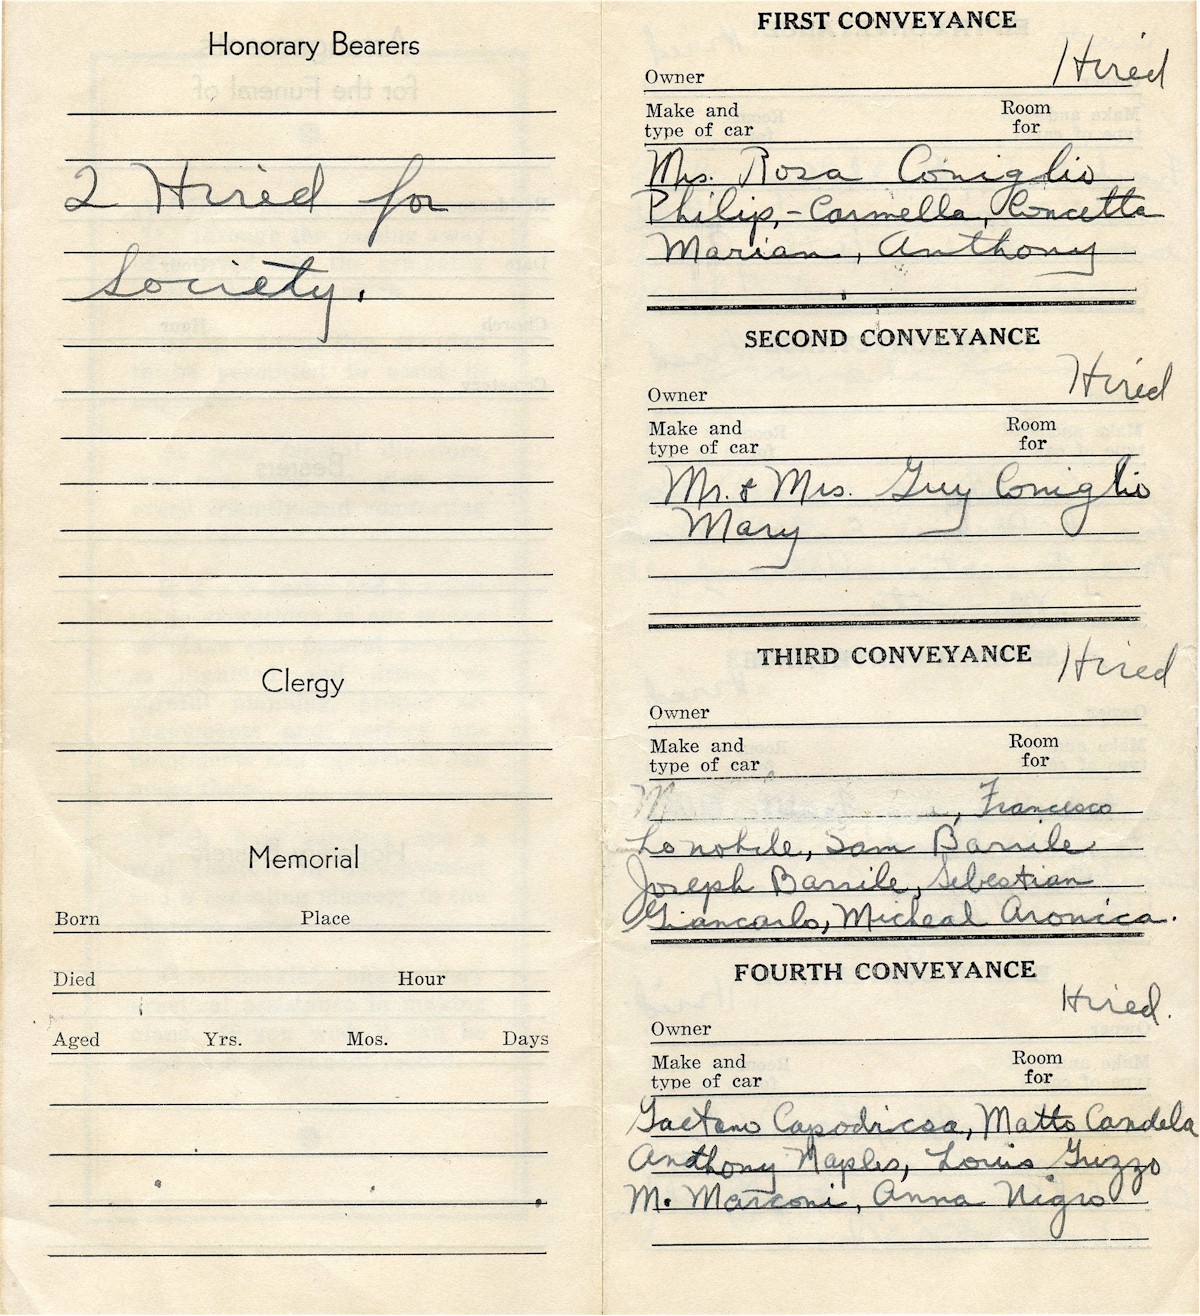 Honorary Bearers
2 Hired for
Society.
Clergy
Memorial
Born Place
Died Hour
Aged Yrs. Mos. Days
FIRST CONVEYANCE
Hired
Owner
Make and Room
type of car for
Mrs. Rosa Coniglio
Philip, - Carmella, Concetta
Marian, Anthony
SECOND CONVEYANCE
Hired
Owner
Make and Room
type of car for
Mr. & Mrs. Guy Coniglio
Mary
THIRD CONVEYANCE Hired
Owner
Make and Room
type of car for
, Francesco
Lonobile, Sam Barrile
Joseph Barrile, Sebestian
Giancarlo, Micheal Aronica.
FOURTH CONVEYANCE
Hired.
Owner
Make and Room
type of car for
Gaetano Capodicasa, Matto Candela
Anthony Naples, Louis Guzzo
M. Marconi, Anna Nigro